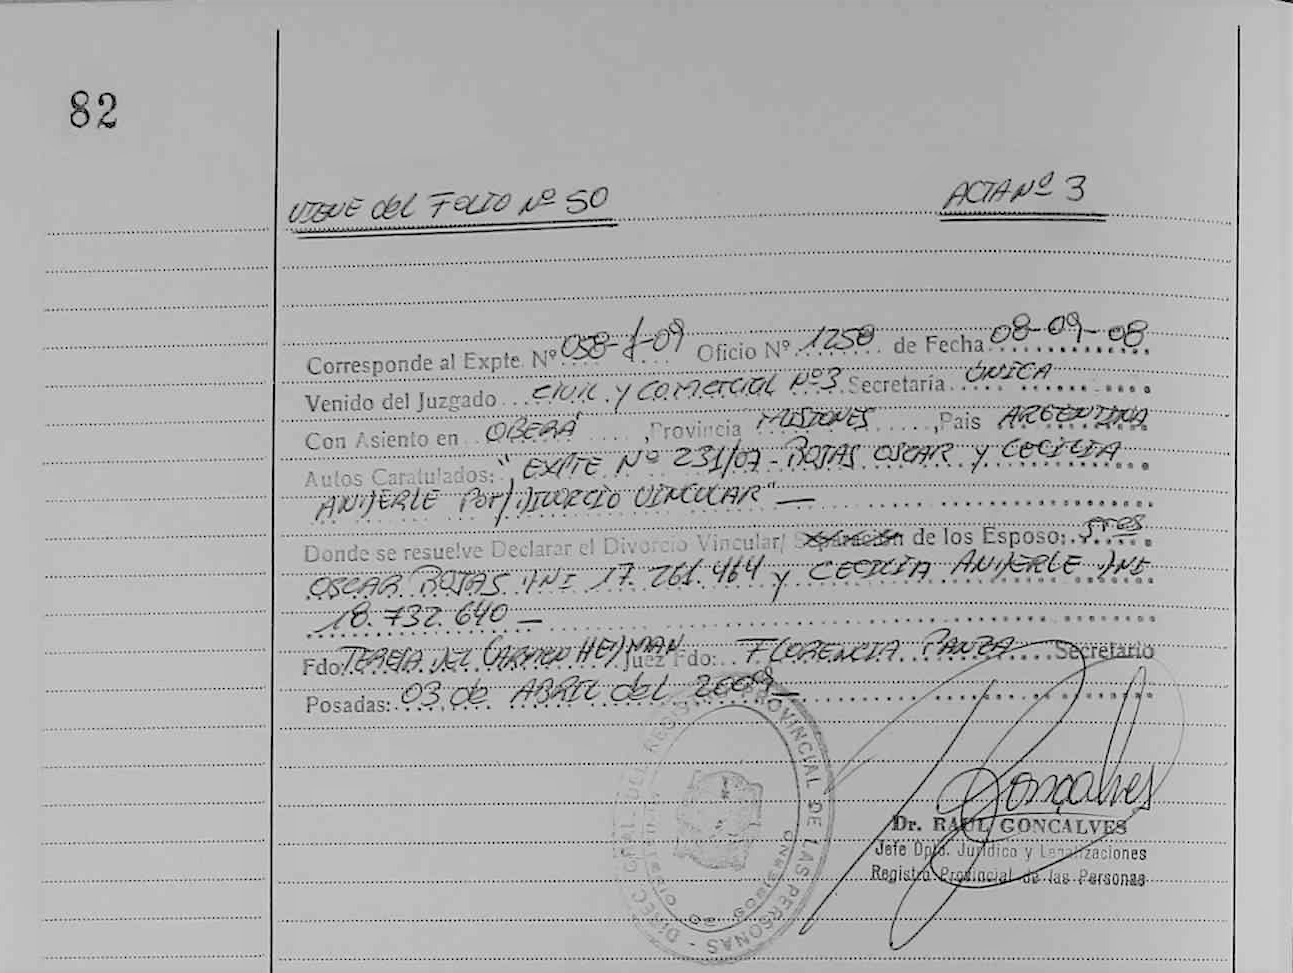 82
VIENE del FOLIO Nº 50
ACTA Nº 3
Corresponde al Expte. Nº 058-J-09 Oficio Nº 1250 de Fecha 08-09-08
Venido del Juzgado CIVIL y COMERCIAL Nº3 Secretaria ÚNICA
Con Asiento en OBERÁ ,Provincia MISIONES ,Pais ARGENTINA
Autos Caratulados: "EXPTE Nº 231/07 - ROJAS OSCAR y CECILIA
ANDERLE POR/ DIVORCIO VINCULAR" —
Donde se resuelve Declarar el Divorcio Vincular/ Separación de los Esposo: Sres
OSCAR ROJAS DNI 17.261.464 y CECILIA ANDERLE DNI
18.732.640 —
Fdo: TERESA DEL CARMEN HEDMAN Juez Fdo: FLORENCIA PANZA Secretario
Posadas: 03 de ABRIL del 2009 —
Goncalves
Dr. RAUL GONCALVES
Jefe Dpto. Jurídico y Legalizaciones
Registro Provincial de las Personas
PROVINCIAL DE LAS PERSONAS